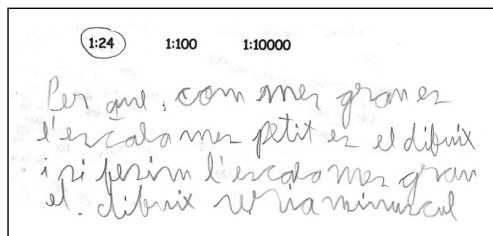 1:24 1:100 1:10000
Per que, com mes gran es
l'escala mes petit es el dibuix
i si fesim l'escala mes gran
el. dibuix seria minuscul